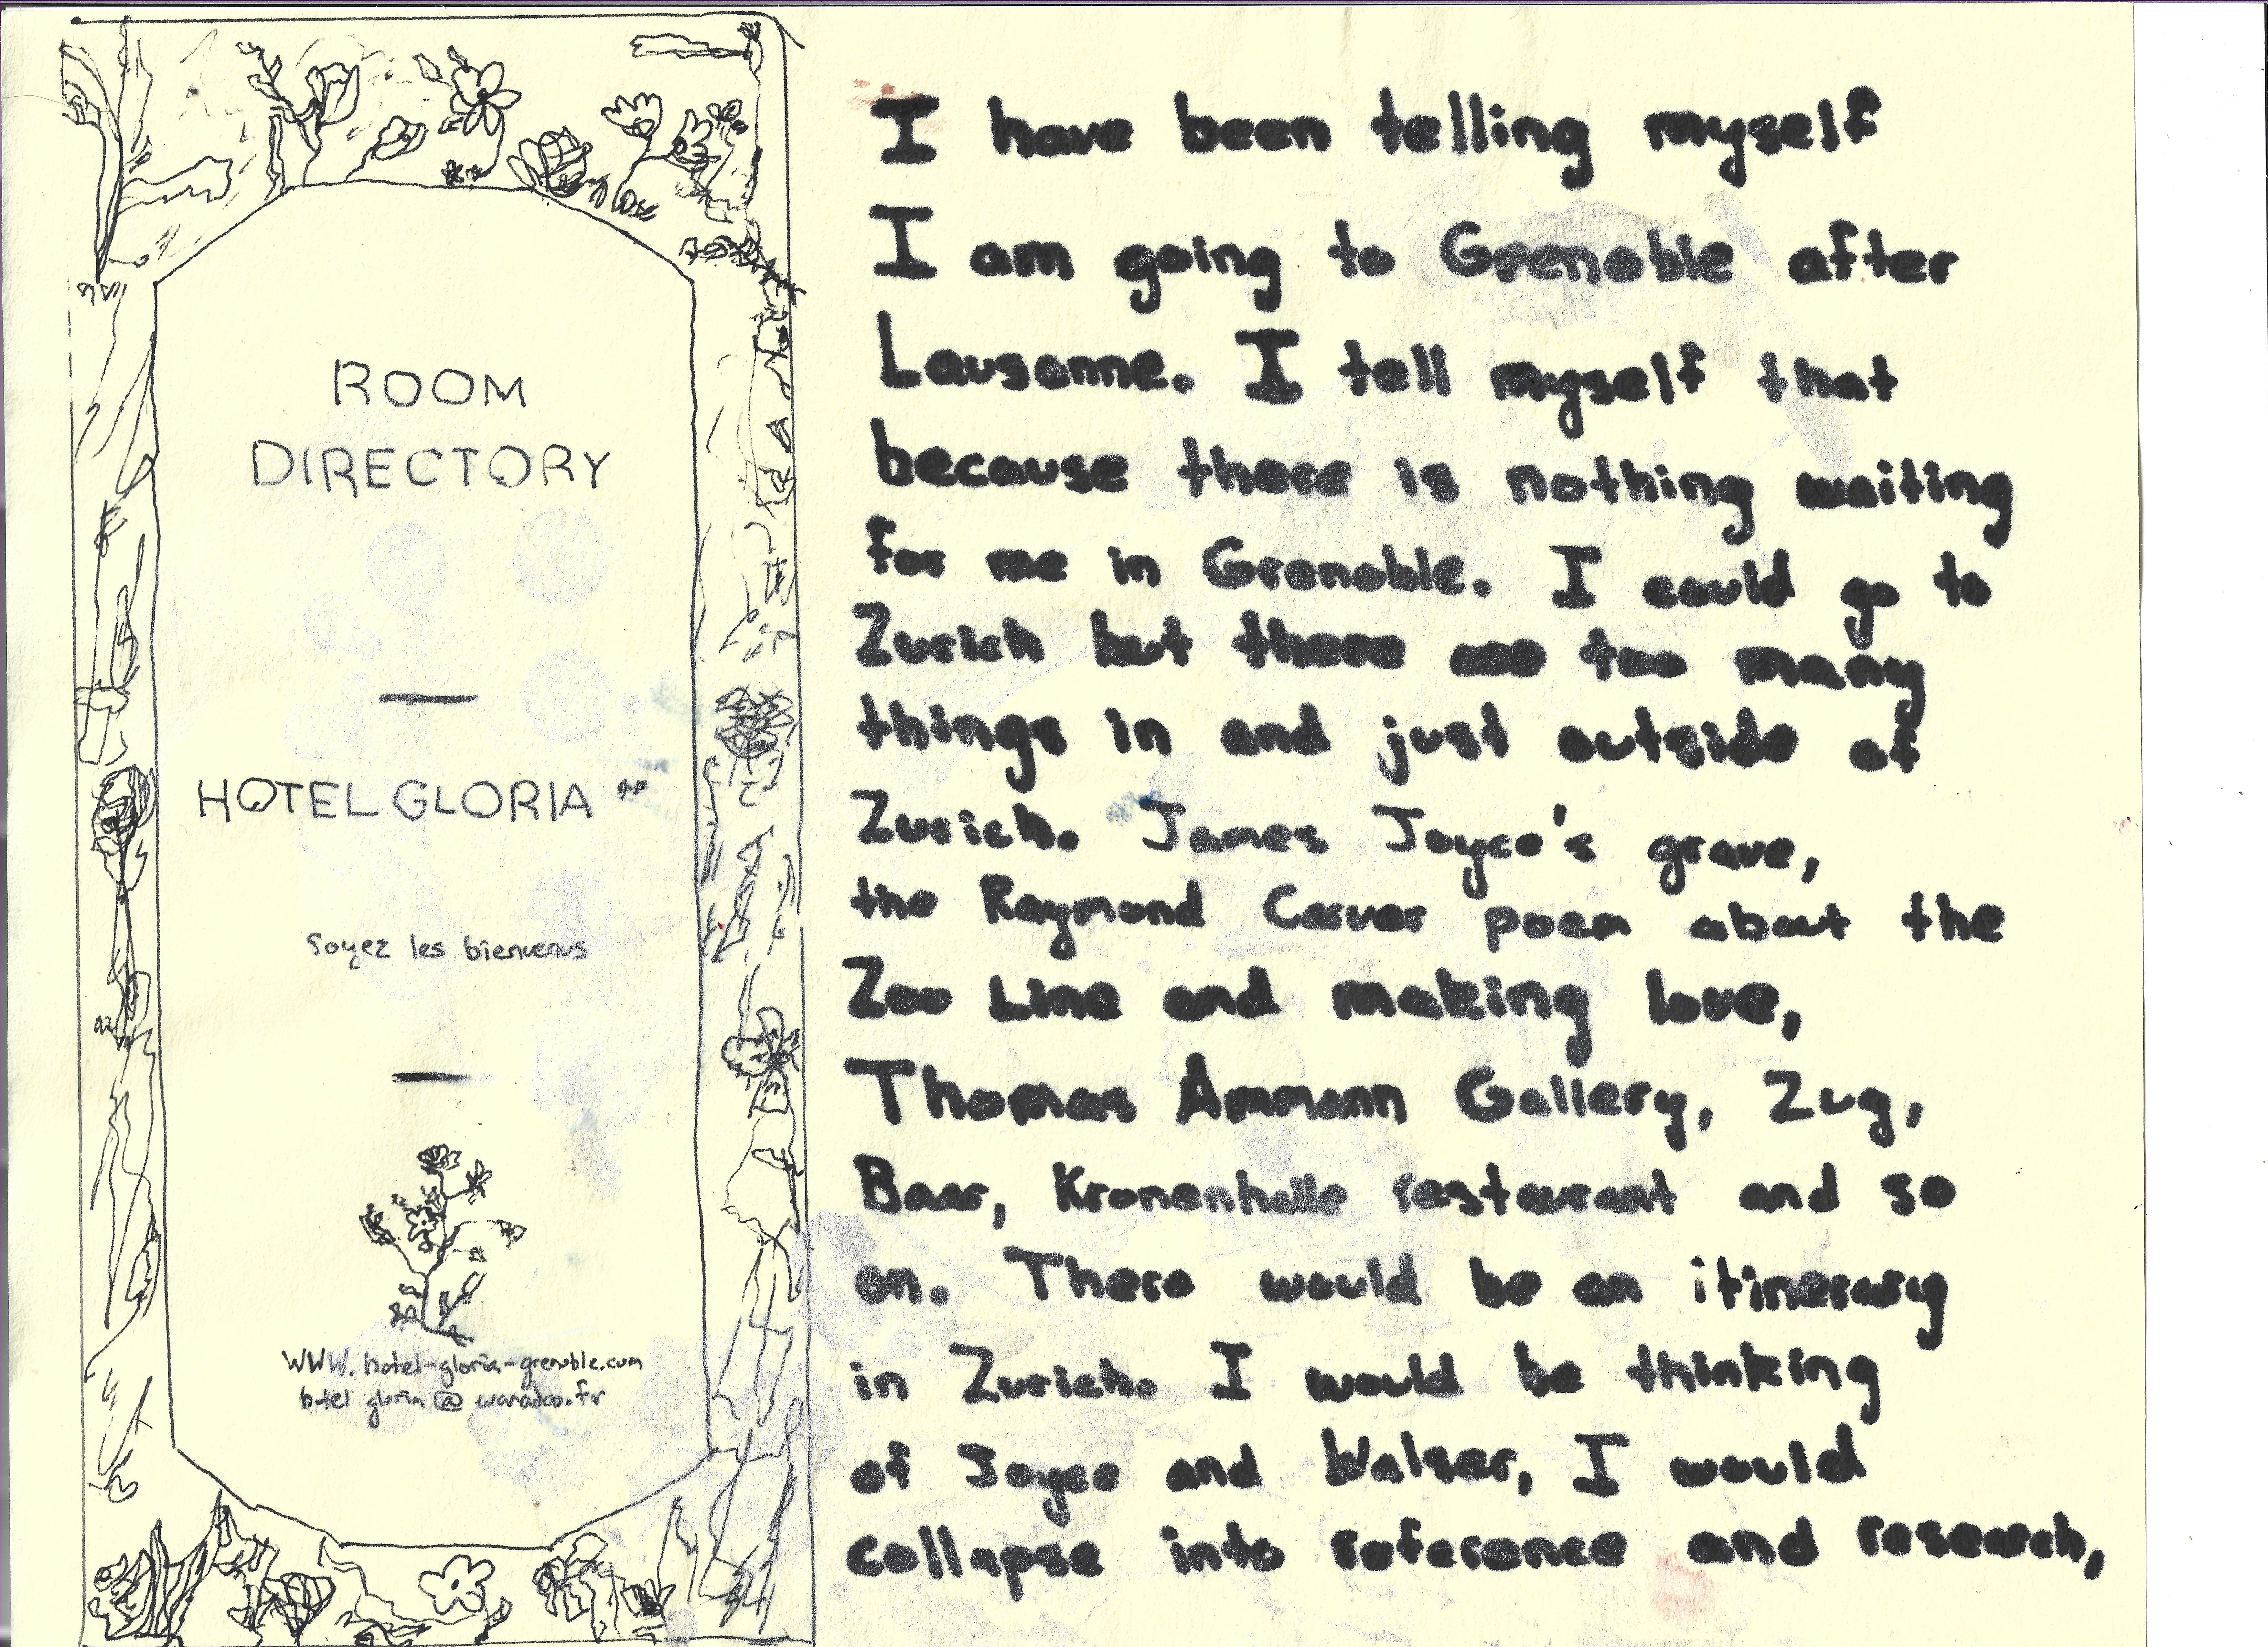 ROOM
DIRECTORY
HOTEL GLORIA **
Soyez les bienvenus
www.hotel-gloria-grenoble.com
hotel gloria @ wanadoo.fr
I have been telling myself
I am going to Grenoble after
Lausanne. I tell myself that
because there is nothing waiting
for me in Grenoble. I could go to
Zurich but there are too many
things in and just outside of
Zurich. James Joyce's grave,
the Raymond Carver poem about the
Zoo Line and making love,
Thomas Ammann Gallery, Zug,
Baar, Kronenhalle restaurant and so
on. There would be an itinerary
in Zurich. I would be thinking
of Joyce and Walser, I would
collapse into reference and research,